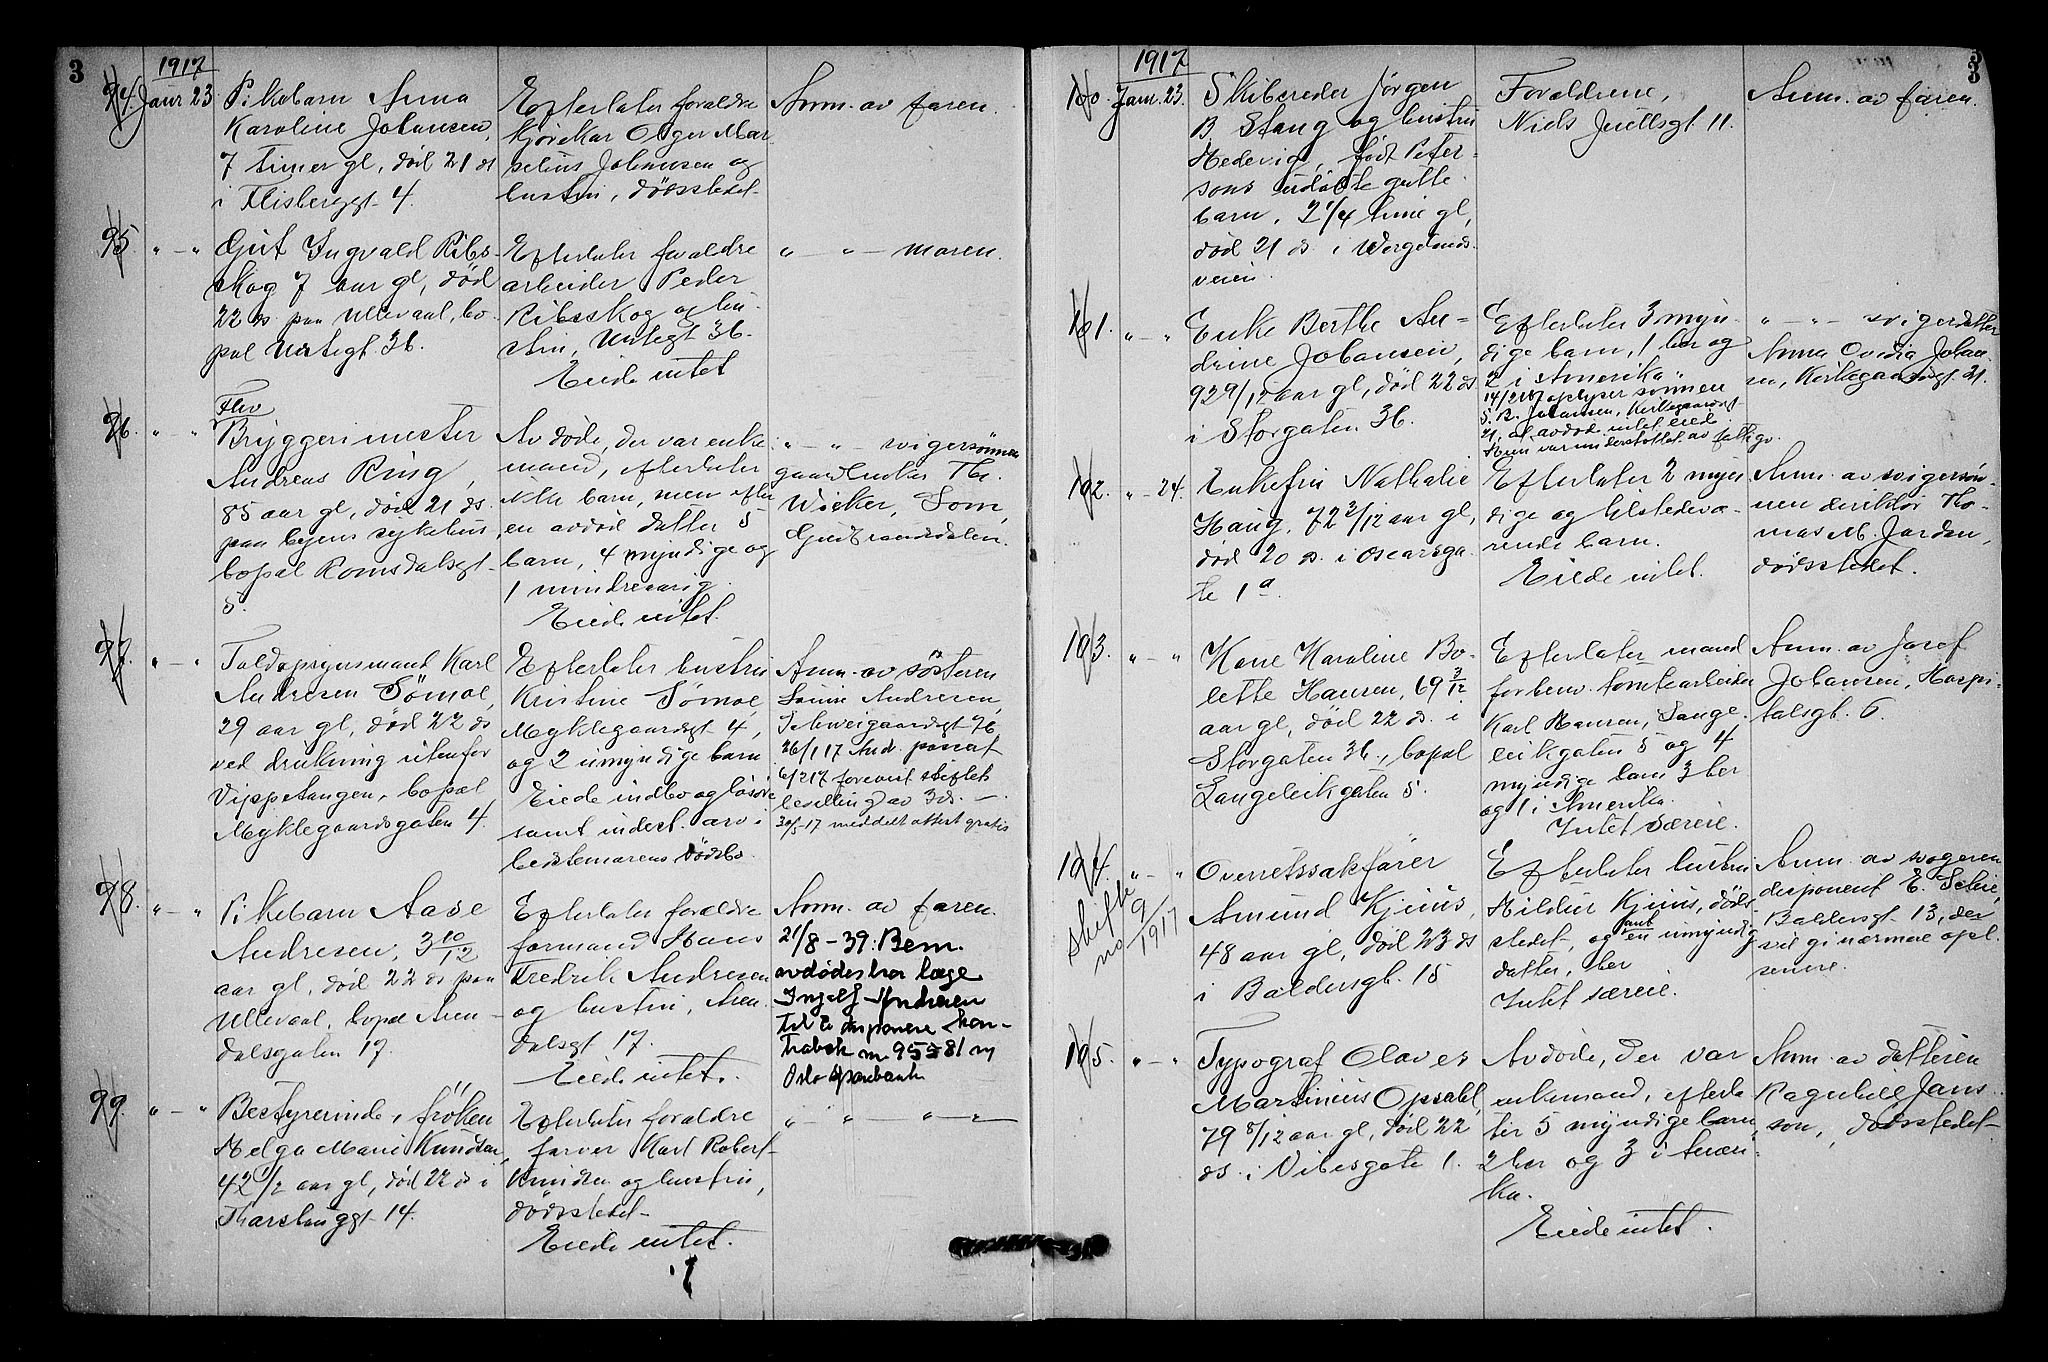 3
1917
94. Januar 23
Pikebarn Anna
Karoline Johansen,
7 timer gl, död 21 ds
i Flisberggt. 4.
Efterlater foraldre
kjörekar Olger Mar-
selius Johansen og
hustru, dödsstedet.
Anm. av faren.
95. " — "
Gut Ingvald Ribs-
skog 7 aar gl, död
22 ds. paa Ullevaal, bo-
pæl Urtegt. 36.
Efterlater foraldre
arbeider Peder
Ribsskog og hu-
stru, Urtegt 36.
Eiede intet
" — " — moren.
96. " — "
Fhv
Bryggerimester
Andreas Ring,
85 aar gl, död 21 ds.
paa byens sykehus,
bopæl Romsdalsgt.
5.
Avdöde, der var enke-
mand, efterlater
ikke barn, men efter
en avdöd datter 5
barn, 4 myndige og
1 mindreaarig.
Eiede intet.
" — " — svigersönnen
gaardbruker Th.
Wicker, Som,
Gudbrandsdalen.
97. " — "
Toldopsynsmand Karl
Andresen Sömoe,
29 aar gl, död 22 ds
ved drukning utenfor
Vippetangen, bopæl
Myklegaardsgaten 4.
Efterlater hustru
Kristine Sömoe,
Myklegaardsgt 4,
og 2 umyndige barn
Eiede indbo og lösöre
samt indest. arv i
bestemorens dödsbo.
Anm. av sösteren
Louise Andresen,
Schweigaardsgt 76
26/1 17 And. passat
6/2 17 forevist skiftets
bevilling av 3 ds. —
30/5-17 meddelt attest gratis
98. " — "
Pikebarn Aase
Andresen, 3 10/12
aar gl, död 22 ds paa
Ullevaal, bopæl Aren-
dalsgaten 17.
Efterlater forældre
formand Hans
Fredrik Andresen
og hustru, Aren-
dalsgt 17.
Eiede intet.
Anm. av faren.
21/8 - 39: Bem.
avdödes bror læge
Andresen
til å disponere kon-
trabok nr. 95581 i
Oslo Sparebank
99. " — "
Bestyrerinde, fröken
Helga Marie Knudsen,
42 1/2 aar gl, död 22 ds i
Tharsbuggt. 14.
Efterlater foraldre
farver Karl Robert
Knudsen og hustru,
dödsstedet.
Eiede intet.
" — " — " — "
3
1917
100. Jan. 23.
Skibsreder Jörgen
B. Stang og hustru
Hedevig, födt Peter-
sons udöbte gutte-
barn, 2 1/4 time gl,
död 21 ds. i Wergelands-
veien.
Foraldrene,
Niels Juellsgt 11.
Anm. av faren.
101. " — "
Enke Berthe An-
drine Johansen,
92 9/12 aar gl, död 22 ds
i Storgaten 36.
Efterlater 3 myn-
dige barn, 1 her og
2 i Amerika.
14/2 17 oplyser sönnen
S. B. Johansen, Kirkegaardsgt
21, at avdöde intet eied
Hun var understöttet av fattigv.
" — " — svigerdatter
Anna Ovidia Johan-
sen, Kirkegaardsgt. 21.
102. " — 24.
Enkefru Nathalie
Haug, 72 3/12 aar gl,
död 20 ds. i Oscarsga-
te 1a.
Efterlater 2 myn-
dige og tilstedevæ-
rende barn.
Eiede intet.
Anm. av svigersön-
nen direktör Tho-
mas M. Jordan,
dödsstedet.
103. " — "
Kone Karoline Bo-
lette Hansen, 69 3/12
aar gl, död 22 ds. i
Storgaten 36., bopæl
Langeleikgaten 5.
Efterlater mand
forhenv. tomtearbeider
Karl Hansen, Lange-
leikgaten 5 og 4
myndige barn 3 her
og 1 i Amerika.
Intet særeie.
Anm. av Josef
Johansen, Hospi-
talsgt. 6.
104. " — "
Skifte
no 9/1917
Overretssakförer
Amund Kjuus,
48 aar gl, död 23 ds
i Baldersgt. 15
Efterlater hustru
Hildur Kjuus, döds-
stedet, og en umyndig
datter, her
Intet særeie.
Anm. av svogeren
disponent E. Schie,
Baldersgt. 13, der
vil gi nærmere opl.
senere.
105. " — "
Typograf Olaves
Martinius Opsahl,
79 8/12 aar gl, död 22
ds. i Vibesgate 1.
Avdöde, der var
enkemand, efterla-
ter 5 myndige barn,
2 her og 3 i Ameri-
ka.
Eiede intet.
Anm. av datteren
Ragnhild Jans-
son, dödsstedet.